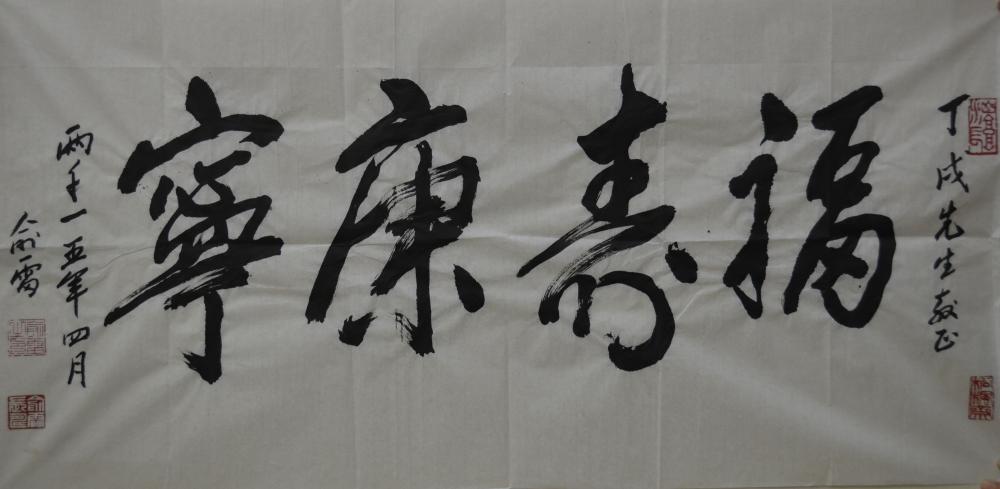 丁成先生教正
福壽康寧
兩千一五年四月
俞雷